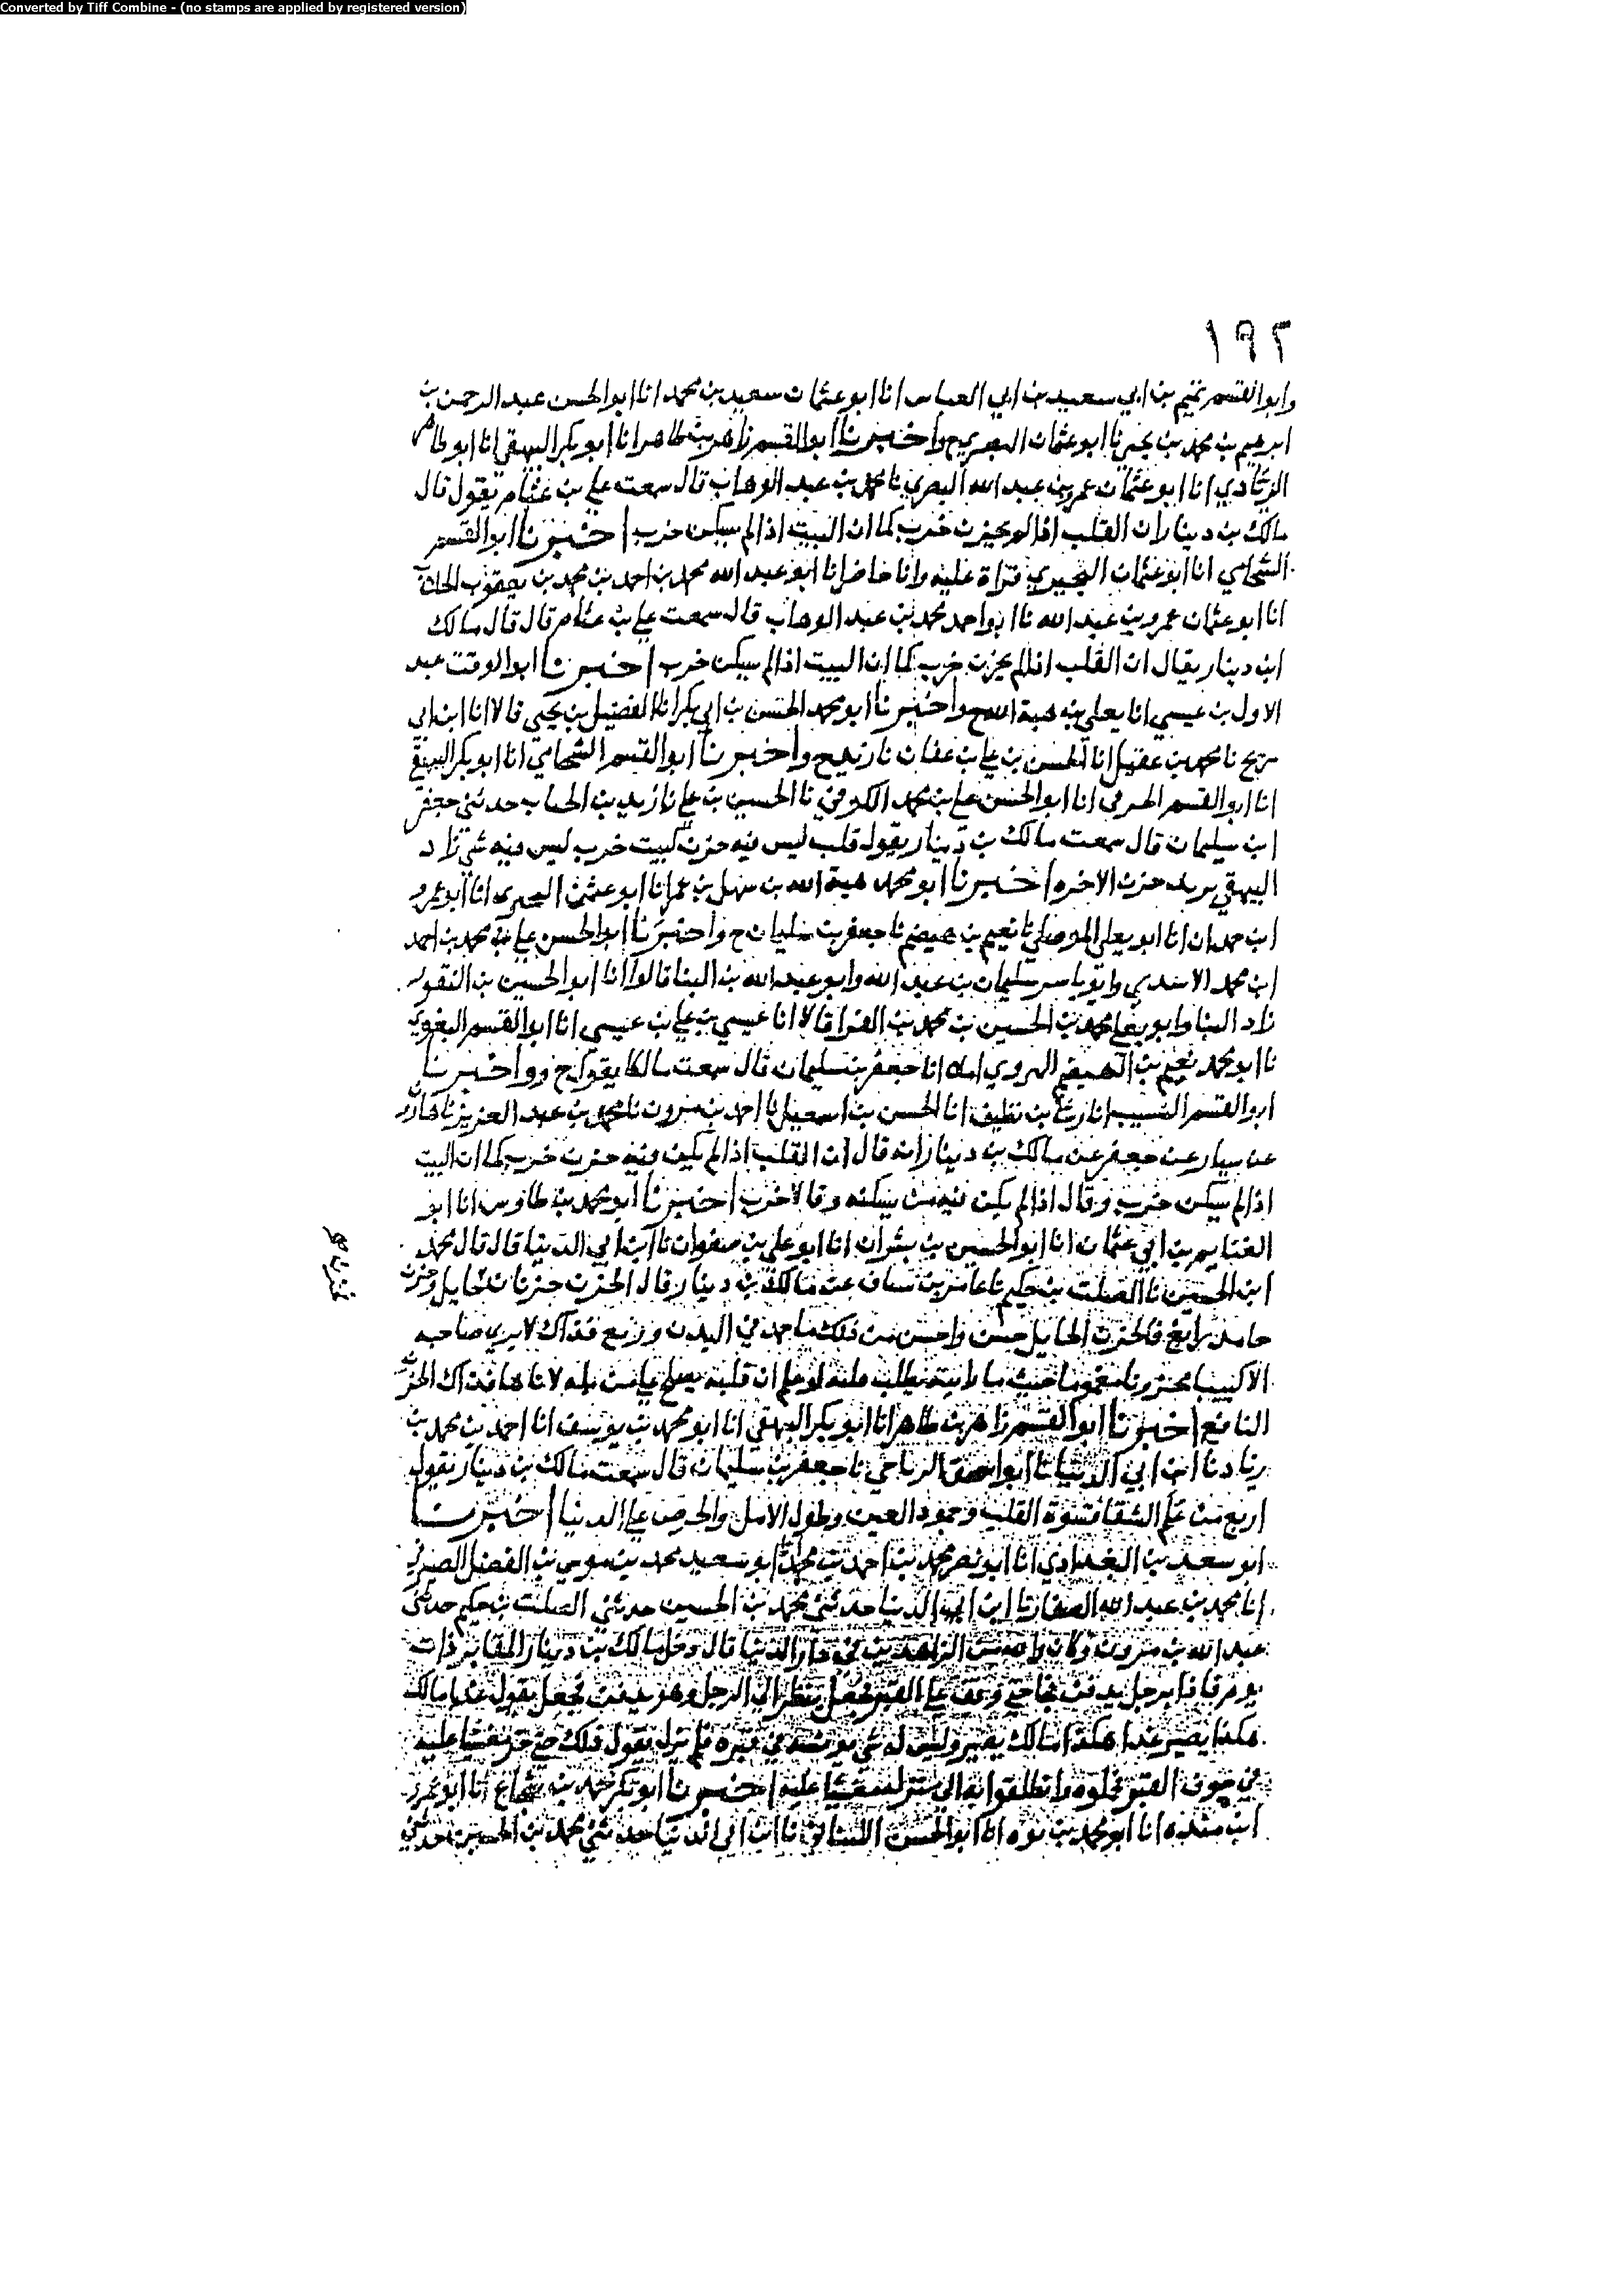 Converted by Tiff Combine - (no stamps are applied by registered version)
١٩٢
وابو القسم تميم بن ابي سعيد بن ابي العباس انا ابو عثمان سعيد بن محمد انا ابو الحسن عبد الرحمن بن
ابرهيم بن محمد بن يحيى نا ابو عثمان البصري ح واخبرنا ابو القسم زاهر بن طاهر انا ابو بكر البيهقي انا ابو طاهر
الزيادي انا ابو عثمان عمرو بن عبد الله البصري نا محمد بن عبد الوهاب قال سمعت علي بن عثام يقول قال
مالك بن دينار ان القلب اذا لم يحزن خرب كما ان البيت اذا لم يسكن خرب اخبرنا ابو القسم
الشحامي انا ابو عثمان البحيري قراة عليه وانا حاضر انا ابو عبد الله محمد بن احمد بن محمد بن يعقوب
انا ابو عثمان عمرو بن عبد الله نا ابو احمد محمد بن عبد الوهاب قال سمعت علي بن عثام قال قال مالك
ابن دينار يقال ان القلب اذا لم يحزن خرب كما ان البيت اذا لم يسكن خرب اخبرنا ابو الوقت عبد
الاول بن عيسى انا يعلى بن هبة الله ح واخبرنا ابو محمد الحسن بن ابي بكر انا الفضيل بن يحيى قالا انا ابن ابي
شريح نا محمد بن عقيل انا الحسن بن علي بن عفان نا زيد ح واخبرنا ابو القسم الشحامي انا ابو بكر البيهقي
انا ابو القسم الحرفي انا ابو الحسن علي بن محمد الكوفي نا الحسين بن علي نا زيد بن الحباب حدثني جعفر
ابن سليمان قال سمعت مالك بن دينار يقول قلب ليس فيه حزن كبيت خرب ليس فيه شي زاد
البيهقي يريد حزن الاخره اخبرنا ابو محمد هبة الله بن سهل بن عمر انا ابو عثمن البحيري انا ابو عمرو
ابن حمدان انا ابو يعلى الموصلي نا نعيم بن هيصم نا جعفر بن سليمان ح واخبرنا ابو الحسن علي بن محمد بن احمد
ابن محمد الاسدي وابو ياسر سليمان بن عبد الله وابو عبد الله بن البنا قالوا انا ابو الحسين بن النقور
زاد البنا وابو يعلى محمد بن الحسين بن محمد بن الفرا قالا انا عيسى بن علي بن عيسى انا ابو القسم البغوي
نا ابو محمد نعيم بن الهيصم الهروي املا انا جعفر بن سليمان قال سمعت مالكا يقول ح واخبرنا
ابو القسم النسيب انا رشا بن نظيف انا الحسن بن اسمعيل نا احمد بن مرون نا محمد بن عبد العزيز نا هارون
عن سيار عن جعفر عن مالك بن دينار انه قال ان القلب اذا لم يكن فيه حزن خرب كما ان البيت
اذا لم يسكن خرب وقال اذا لم يكن فيه من يسكنه وقالا خرب اخبرنا ابو محمد بن طاوس انا ابو
الغنايم بن ابي عثمان انا ابو الحسين بن بشران انا ابو علي بن صفوان نا ابن ابي الدنيا قال قال محمد
ابن الحسين نا الصلت بن حكيم نا عامر بن يساف عن مالك بن دينار قال الحزن حزنان حايل وحزن
حامد رابغ فالحزن الحايل حسن واحسن من ذلك ما جمد في البدن وربع فذاك لا يرى صاحبه
الا كييبا محزونا مغموما حيث ما رايته يطلب مليه لو علم ان قلبه يصلح علي من بله لاتاها فذاك الحزن
النافع اخبرنا ابو القسم زاهر بن طاهر انا ابو بكر البيهقي انا ابو محمد بن يوسف انا احمد بن محمد بن
زياد نا ابن ابي الدنيا نا ابو اسحق الرياحي نا جعفر بن سليمان قال سمعت مالك بن دينار يقول
اربع من علم الشقا قسوة القلب وجمود العين وطول الامل والحرص علي الدنيا اخبرنا
ابو سعد بن البغدادي انا ابو نصر محمد بن احمد بن محمد انا ابو سعيد محمد بن موسى بن الفضل الصيرفي
انا محمد بن عبد الله الصفار نا ابن ابي الدنيا حدثني محمد بن الحسين حدثني الصلت بن حكيم حدثني
عبد الله بن مرزوق وكان والله من الزاهدين في دار الدنيا قال دخل مالك بن دينار المقابر ذات
يوم فاذا برجل يدفن فجا حتى وقف علي القبر فجعل ينظر الي الرجل وهو يدفن فجعل يقول غدا مالك
هكذا يصير غدا هكذا مالك يصير وليس له شي يوسده في قبره فلم يزل يقول ذلك حتى خر مغشيا عليه
في جوف القبر فحملوه وانطلقوا به الي منزله مغشيا عليه اخبرنا ابو بكر محمد بن شجاع انا ابو عمرو
ابن منده انا ابو محمد بن يوه انا ابو الحسن اللبناني نا ابن ابي الدنيا حدثني محمد بن الحسين حدثني